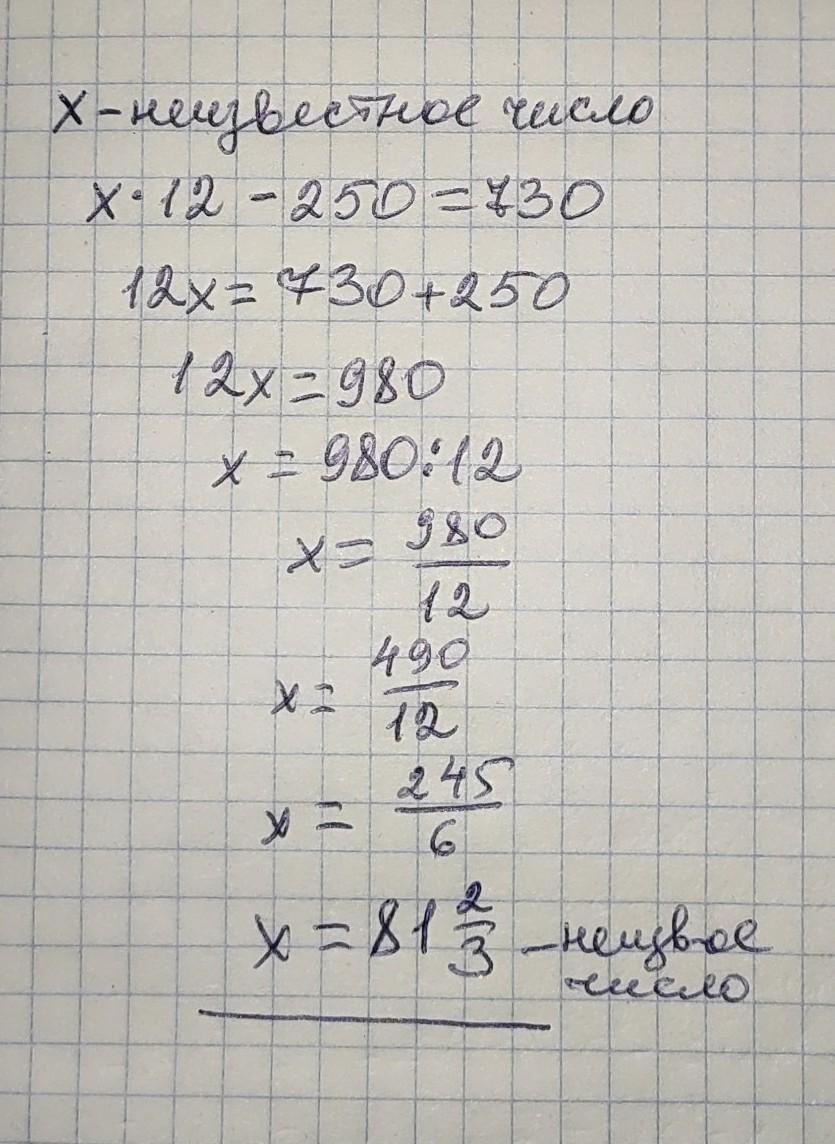 x - неизвестное число
x · 12 - 250 = 730
12x = 730 + 250
12x = 980
x = 980 : 12
x = 980/12
x = 490/12
x = 245/6
x = 81 2/3 - неизв-ое
число